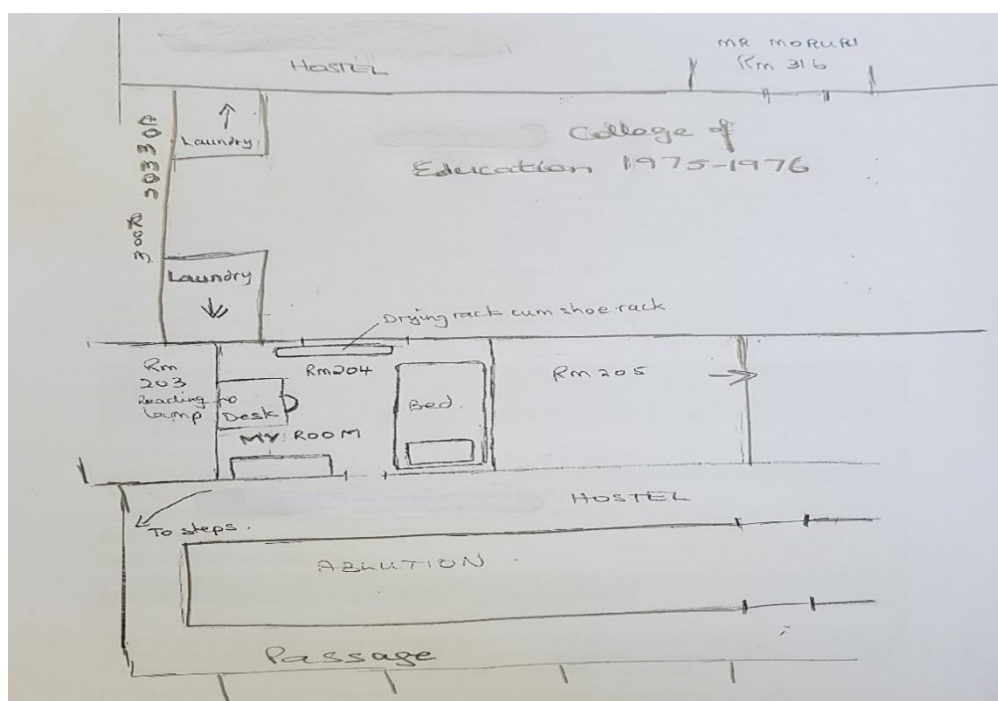 HOSTEL
MR MORURI
Rm 316
College of
Education 1975-1976
Laundry
Laundry
Drying rack cum shoe rack
Rm
203
Reading
Lamp
Desk
Rm204
MY ROOM
Bed.
Rm 205
HOSTEL
To steps.
ABLUTION
Passage